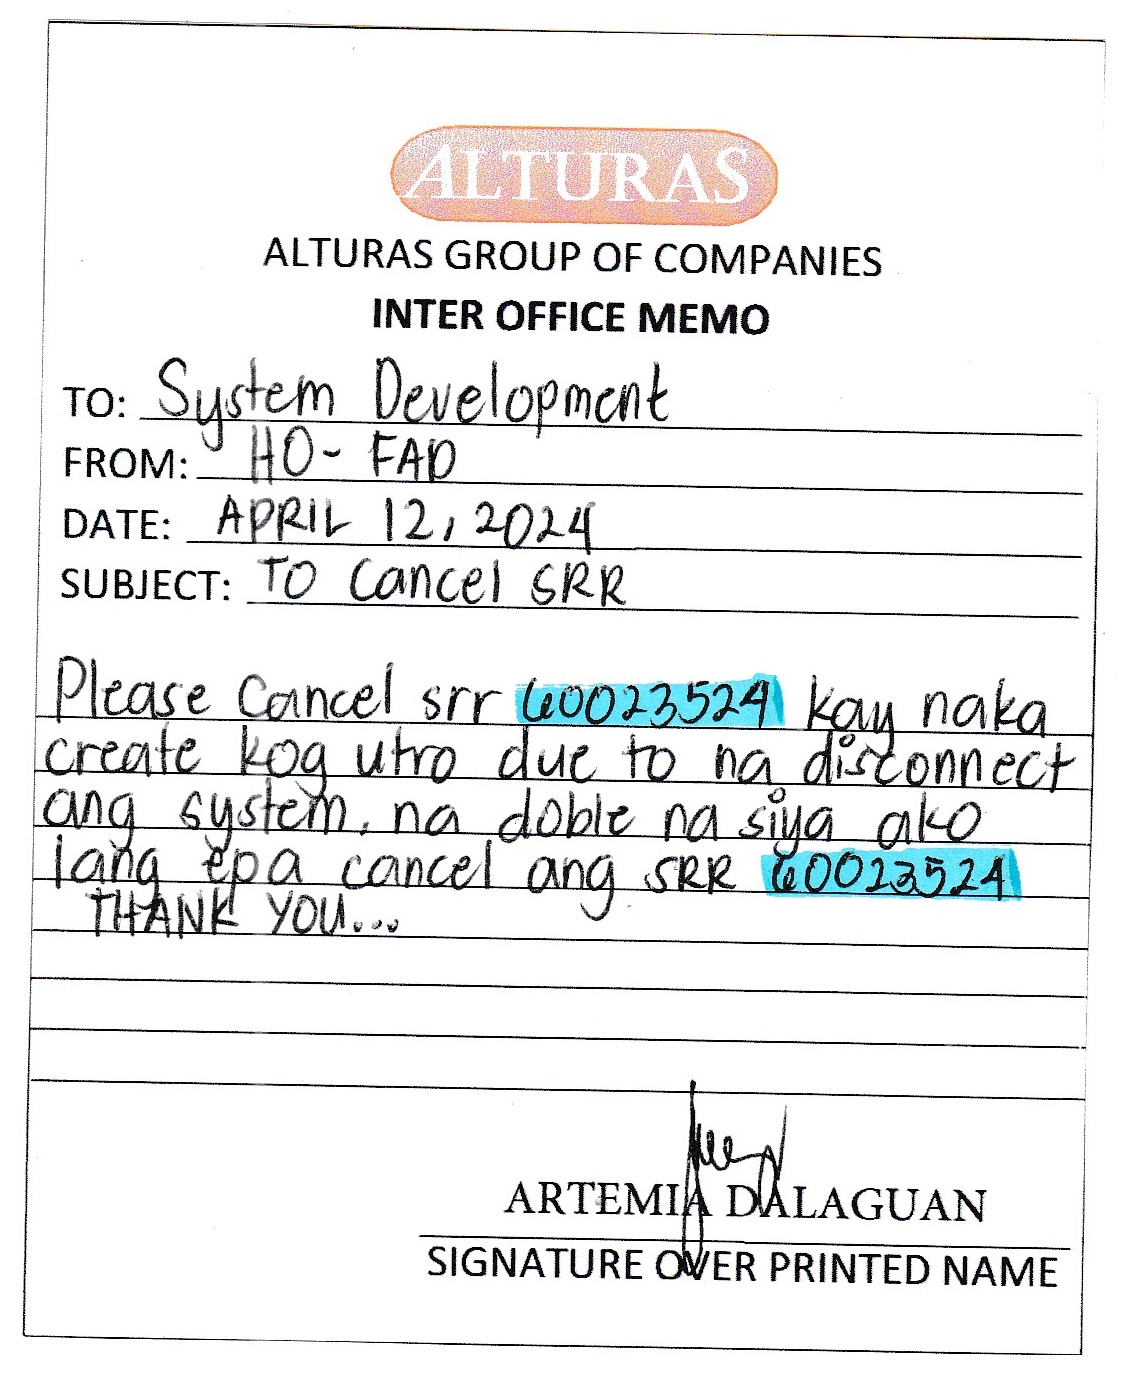 ALTURAS
ALTURAS GROUP OF COMPANIES
INTER OFFICE MEMO
TO: System Development
FROM: HO- FAD
DATE: APRIL 12, 2024
SUBJECT: TO Cancel SRR
Please Cancel srr 60023524 kay naka
create kog utro due to na disconnect
ang system. na doble na siya ako
lang epa cancel ang SRR 60023524
THANK YOU...
ARTEMIA DALAGUAN
SIGNATURE OVER PRINTED NAME